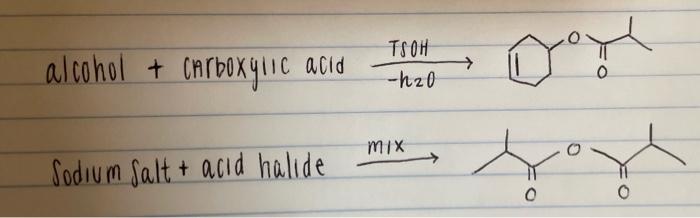 alcohol + carboxylic acid TsOH
-h2o
O
O
Sodium Salt + acid halide mix
O
O O